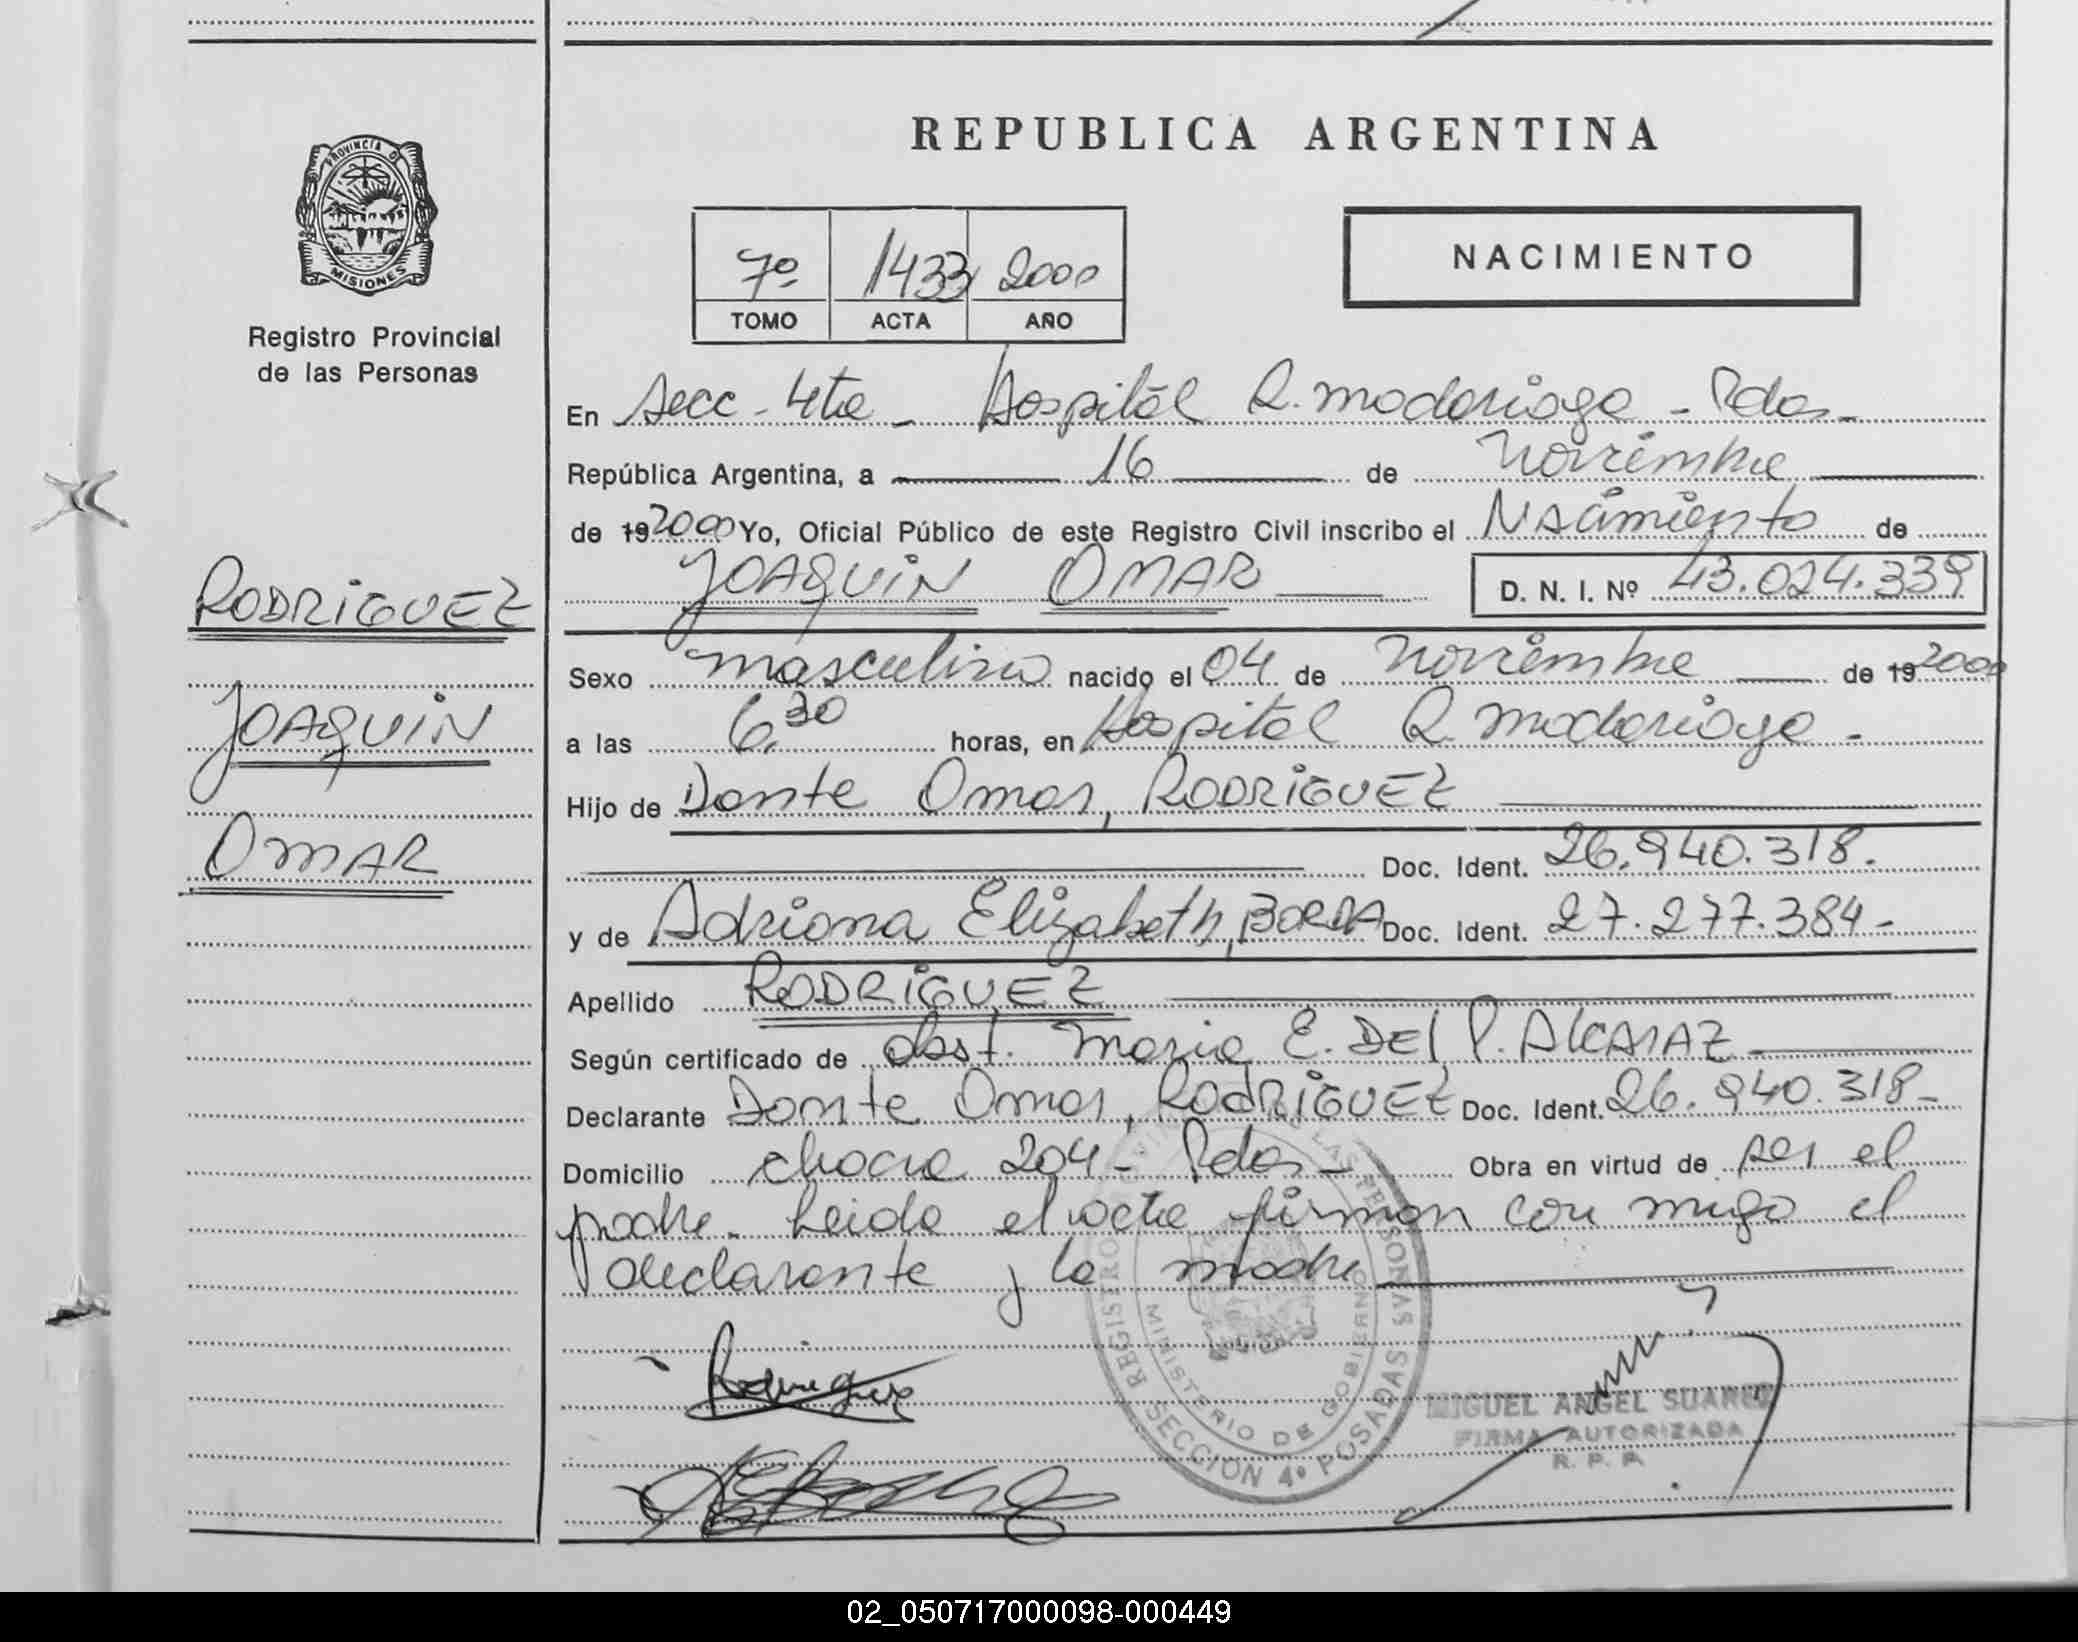 REPUBLICA ARGENTINA
PROVINCIA DE
MISIONES
Registro Provincial
de las Personas
7º 1433 2000
TOMO ACTA AÑO
NACIMIENTO
En Secc - 4ta - Hospital R. Madariaga - Pdas -
República Argentina, a 16 de Noviembre
de 192000 Yo, Oficial Público de este Registro Civil inscribo el Nacimiento de
JOAQUIN OMAR D. N. I. Nº 43.024.339
RODRIGUEZ
JOAQUIN
OMAR
Sexo masculino nacido el 04 de Noviembre de 192000
a las 6,30 horas, en Hospital R. Madariaga -
Hijo de Dante Omar, RODRIGUEZ
Doc. Ident. 26.940.318.
y de Adriana Elizabeth, BORDA Doc. Ident. 27.277.384-
Apellido RODRIGUEZ
Según certificado de obst. Maria E. DEl P. AlCARAZ
Declarante Dante Omar, RODRIGUEZ Doc. Ident. 26.940.318-
Domicilio 204 - Pdas - Obra en virtud de ser el
padre. Leida el acta firman con migo el
declarante y la madre
Rodriguez
REGISTRO LAS PERSONAS
MINISTERIO DE GOBIERNO
SECCION 4º POSADAS
MIGUEL ANGEL SUAREZ
FIRMA AUTORIZADA
R. P. P.
02_050717000098-000449